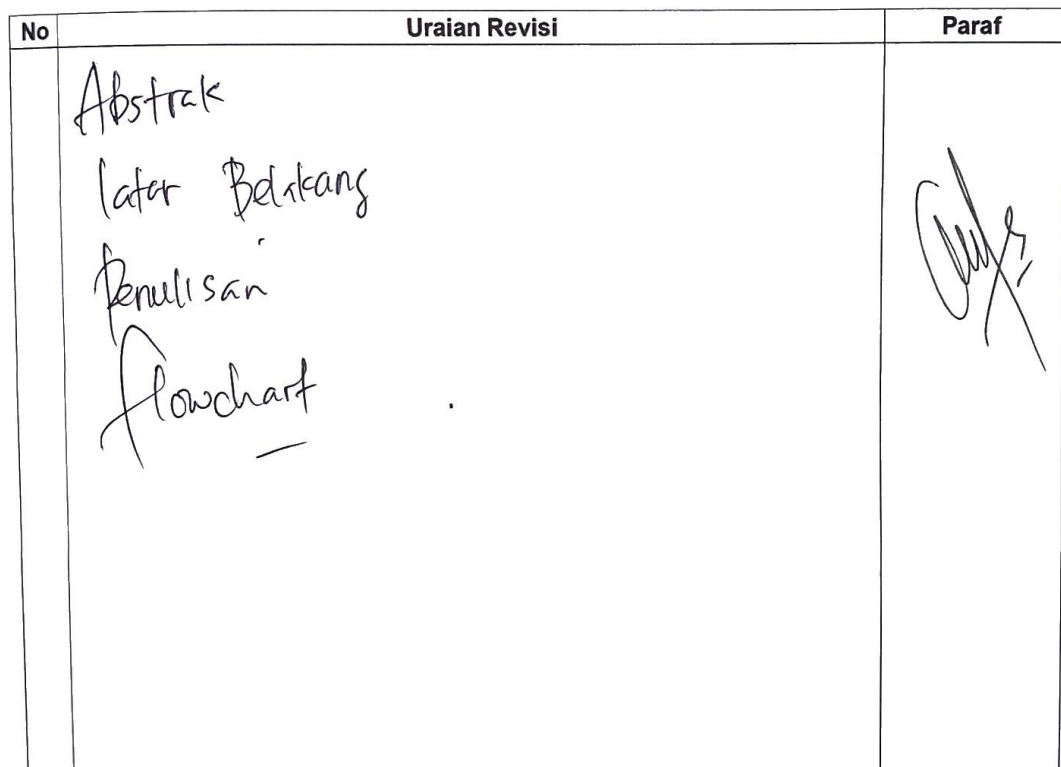 No Uraian Revisi Paraf
Abstrak
latar Belakang
Penulisan
flowchart